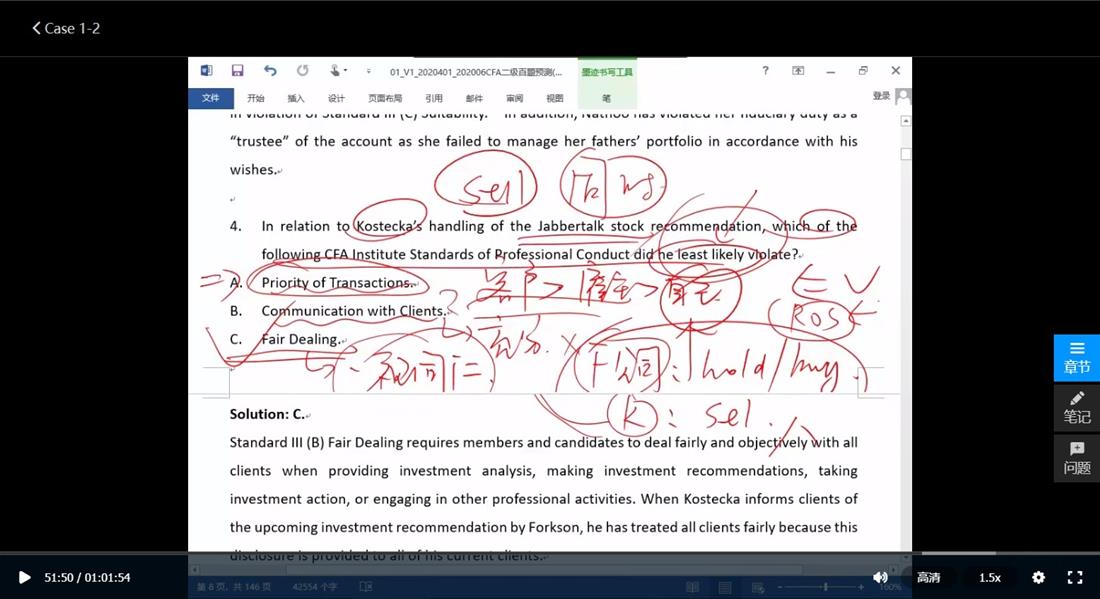 Case 1-2
01_V1_2020401_202006CFA二级百题预测(...
墨迹书写工具
?
文件 开始 插入 设计 页面布局 引用 邮件 审阅 视图 笔 登录
in violation of Standard III (C) Suitability. In addition, Nathoo has violated her fiduciary duty as a
“trustee” of the account as she failed to manage her fathers’ portfolio in accordance with his
wishes.
sell
4. In relation to Kostecka’s handling of the Jabbertalk stock recommendation, which of the
following CFA Institute Standards of Professional Conduct did he least likely violate?
A. Priority of Transactions.
客户 > 雇主 > 自己
B. Communication with Clients.
C. Fair Dealing.
hold/buy.
K: sel
Solution: C.
Standard III (B) Fair Dealing requires members and candidates to deal fairly and objectively with all
clients when providing investment analysis, making investment recommendations, taking
investment action, or engaging in other professional activities. When Kostecka informs clients of
the upcoming investment recommendation by Forkson, he has treated all clients fairly because this
disclosure is provided to all of his current clients.
章节
笔记
问题
第 6 页，共 146 页 42554 个字 160%
51:50 / 01:01:54 高清 1.5x